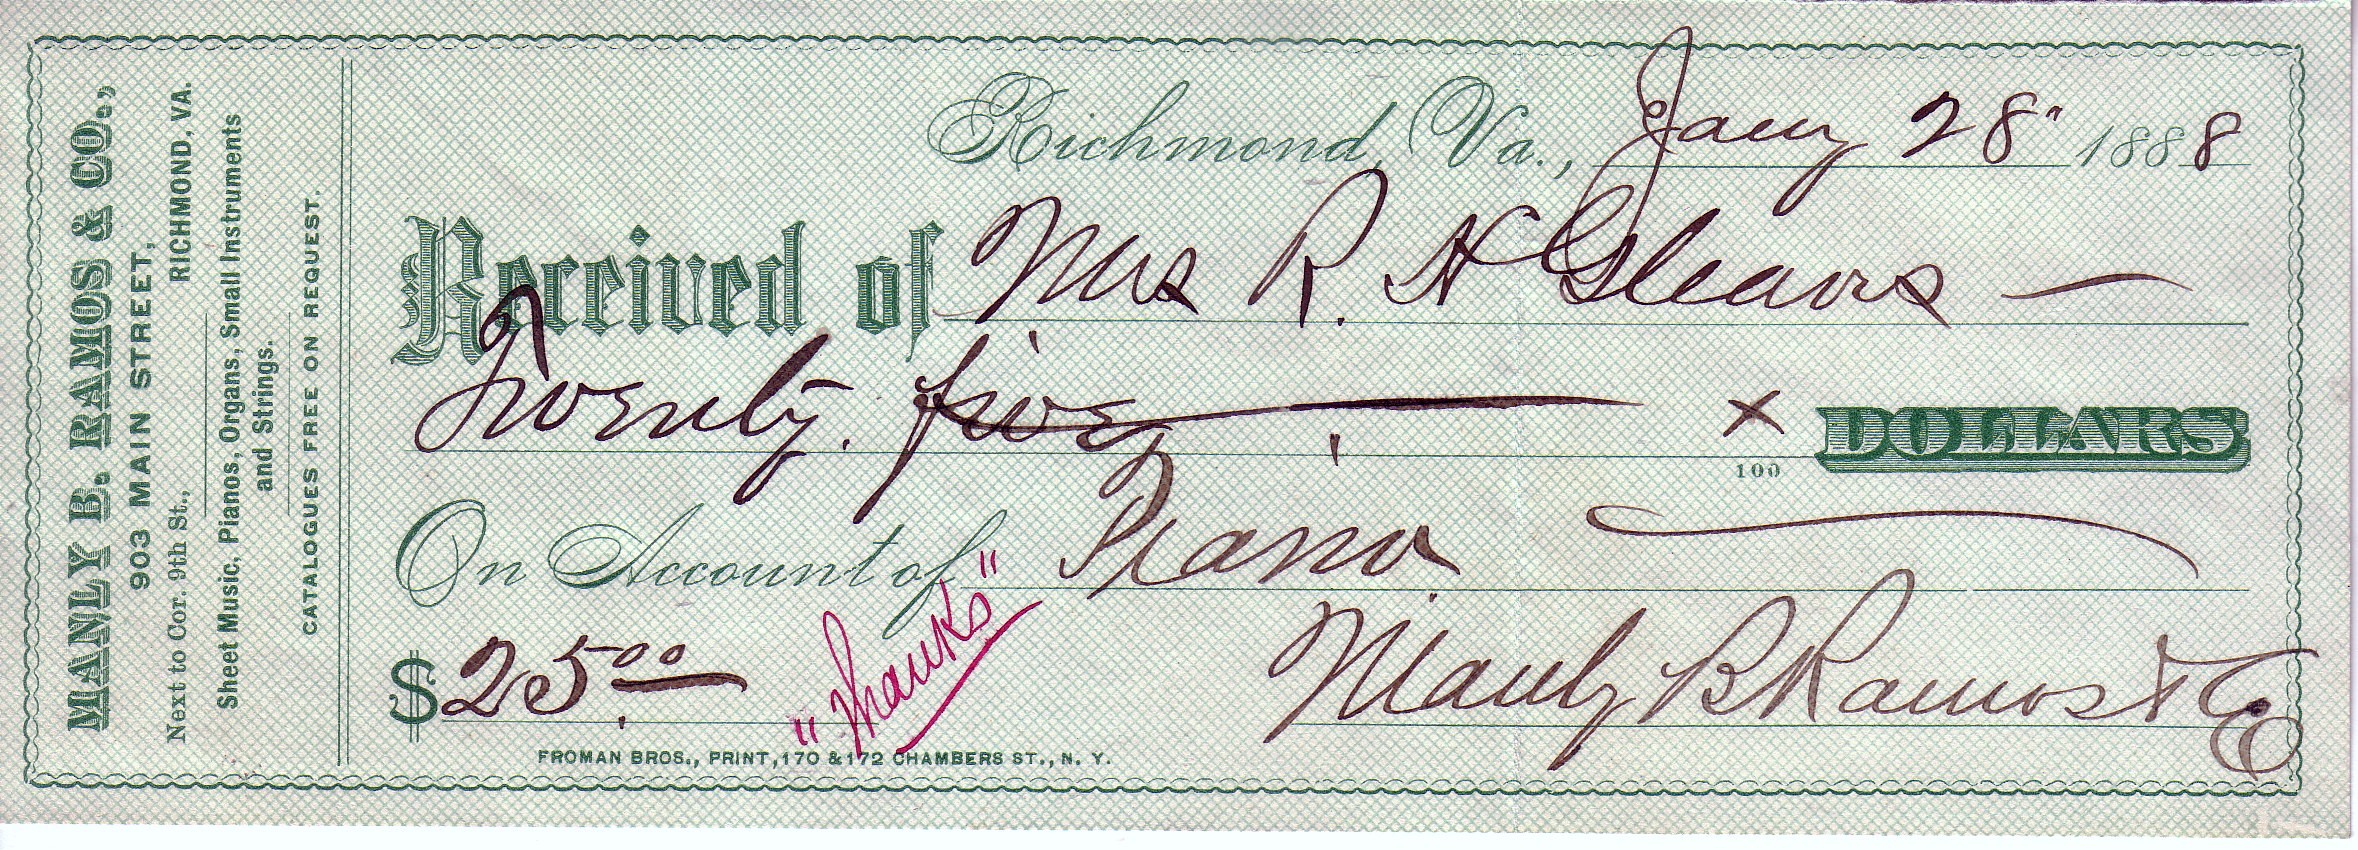 MANLY B. RAMOS & CO.,
903 MAIN STREET,
Next to Cor. 9th St., RICHMOND, VA.
Sheet Music, Pianos, Organs, Small Instruments
and Strings.
CATALOGUES FREE ON REQUEST.
Richmond, Va., Jany 28" 1888
Received of Mrs R. H Gleaves —
Twenty five x/100 DOLLARS
On Account of Piano
$25.00 "Thanks" Manly B Ramos & Co
FROMAN BROS., PRINT, 170 & 172 CHAMBERS ST., N. Y.